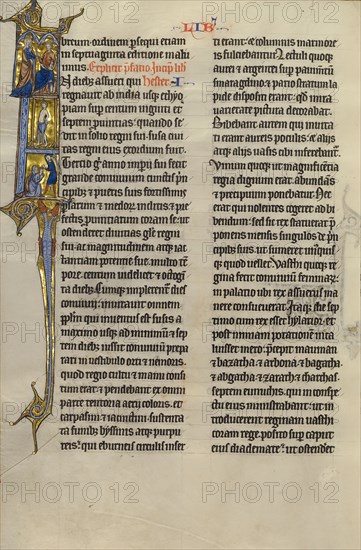 LIBˀ
brorum ordinem ꝑsequi etiam
in septuaginta editione malu
imus. Explicit
In dieb; assueri qui Hester. I.
regnauit ab india usq; ethyo
piam sup centum uiginti et
septem ꝓuincias: quando se
dit in solio regni sui susa ciui
tas regni eius exordium fuit.
Tertio g̃ anno impii sui fecit
grande conuiuium cunctis pͥn
cipib; et pueris suis fortissimis
ꝑsarum et medorum inclitis: et
pͤfectis ꝓuinciarum coram se: ut
ostenderet diuitias gl̃e regni
sui: ac magnitudinem atq; iac
tantiam potentie sue. multo tem
pore. centum uidelicet et octogin
ta dieb;. Cumq; implerentur dies
conuiuii: inuitauit omnem
ppl̃m qui inuentus est susis a
maximo usq; ad minimum: et sep
tem dieb; iussit conuiuium pͤpara
ri in uestibulo orti et nemoris.
quod regio cultu et manu consi
tum erat: et pendebant ex omni
parte tentoria aerii coloris. et
carpasini et iacinctini. sustenta
ta funib; byssinis atq; purpu
reis: qui eburneis circulis inser
ti erant: et columnis marmore
is fulciebantur. Lectuli quoq;
aurei et argentei sup pauimentum
smaragdino et pario stratum la
pide dispositi erant: quod mira
uarietate pictura decorabat.
Bibebant autem qui inuita
ti erant aureis poculis: et aliis
atq; aliis uasis cibi inferebantur.
Vinum quoq; ut magnificentia
regia dignum erat: abundans
et precipuum ponebatur. Nec
erat qui nolentes cogeret ad bi
bendum: sed sic rex statuerat pͤ
ponens mensis singulos de pͥn
cipib; suis. ut sumeret unusquisq;
quod uellet. Vasthi quoq; re
gina fecit conuiuium feminarum
in palatio ubi rex assuerus ma
nere consueuerat. Itaq; die sep
timo cum rex esset hylarior. et
post nimiam potationem inca
luisset mero: pͤcepit maumam
et bazatha. et arbona. et bagatha
et abgatha. et zarath. et charchas.
septem eunuchis. qui in conspe
ctu eius ministrabant: ut in
troducerent reginam uasthi
coram rege. posito sup caput
eius diademate: ut ostenderet